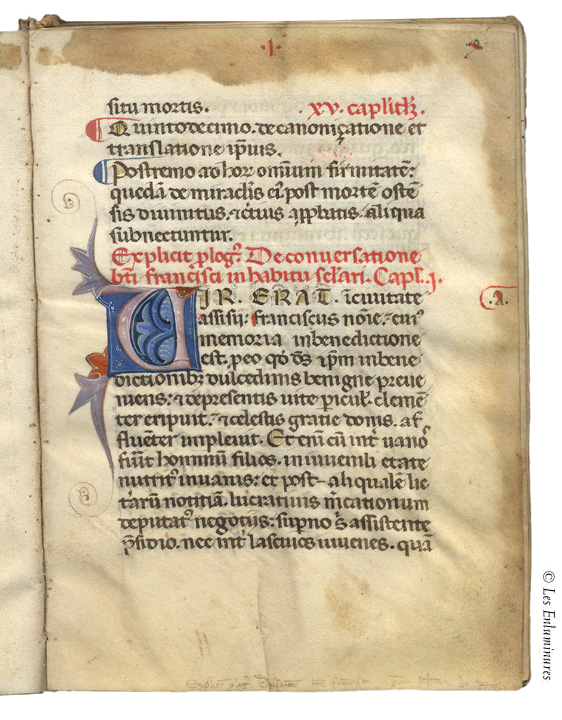 .I.
situ mortis. xv. capl'itlz.
Quintodecimo. de canonizatione et
translatione ip̄ius.
Postremo ad hoꝝ omnium firmitatē:
quedā de miraclis eiꝰ post mortē ostē
sis divinitus, ⁊ certius app̃batis, aliqua
subnectuntur.
Explicit p̃logꝰ. De conversatione
b̄ti francisci in habitu sc̄lari. Capl. j.
VIR. ERAT. ī civitate
assisij; franciscus nomīe, ⁊ cuiꝰ
memoria in benedictione
est. p eo qd̄ dȝ ip̄m in bene
dictionibȝ dulcedinis benigne preve
niens: ⁊ de presentis vite picul'. clemē
ter eripuit. ⁊ celestis gratie donis. af
fluēter implevit. Et enī cū int̓ vanos
fuīt hominum filios. in iuvenili etate
nutritꝰ in vanis: et post aliqualē lit
t̓arū notitiā. lucrativis m̓cationum
deputatꝰ negotiis: sup̓no s̓ assistente
p̃sidio. nec int̓ lascivos iuvenes. quā
.a.
© Les Enluminures